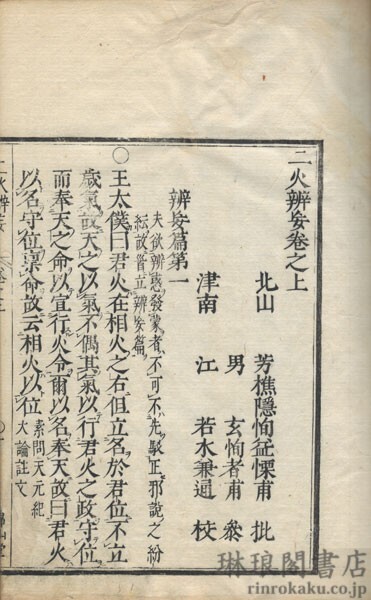 二火辨妄卷之上
北山 芳樵隱恂益慄甫 批
男 玄恂者甫 叅
津南 江 若水兼通 校
辨妄篇第一
夫欲辨惑發蒙者不可不先駁正邪說之紛
紜故首立辨妄篇
○王太僕曰君火在相火之右但立名於君位不立
歲氣故天之以氣不偶其氣以行君火之政守位
而奉天之命以宣行火令爾以名奉天故曰君火
以名守位稟命故云相火以位
素問天元紀
大論註文
二火辨妄
琳琅閣書店
rinrokaku.co.jp